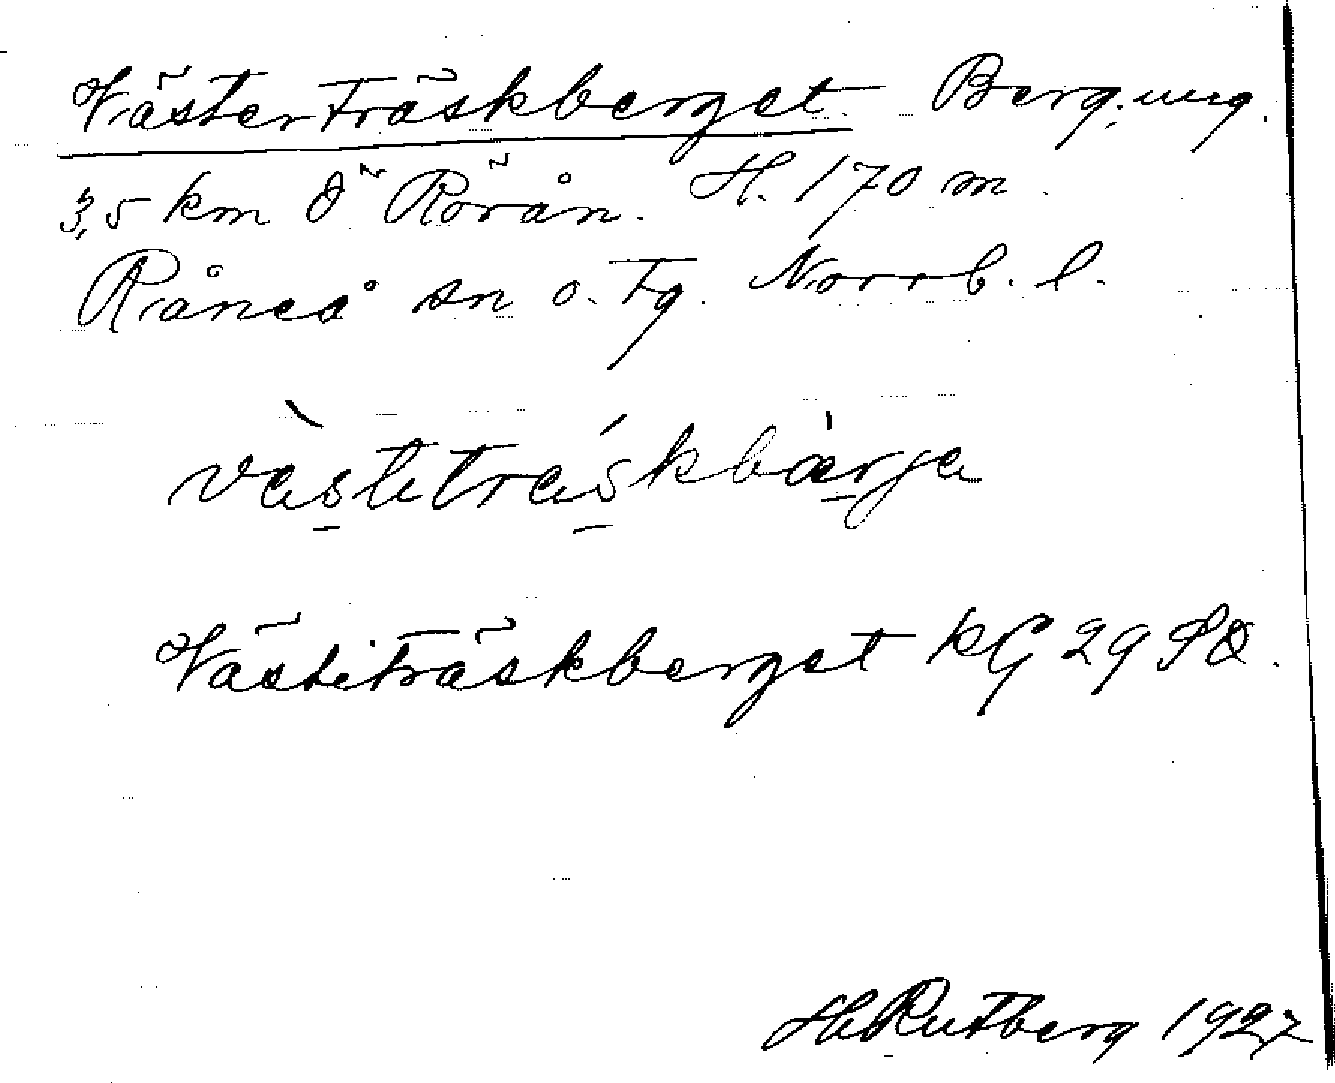 Västerträskberget Berg, ung.
3,5 km Ö Rörån. H. 170 m.
Råneå sn o. tg. Norrb. l.
vàstitráskbàrja
Västiträskberget kG 29 SO.
H. Rutberg 1927